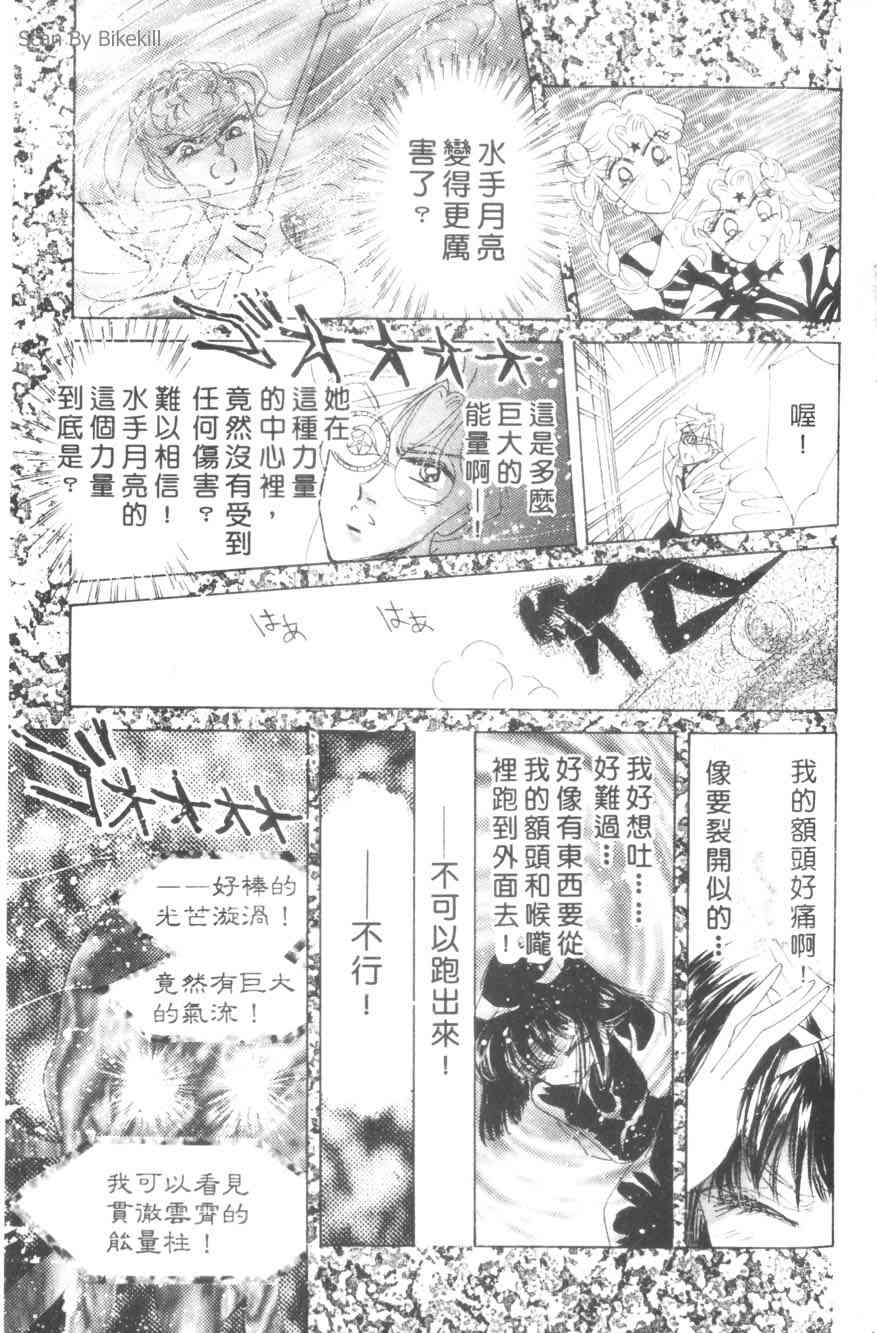 Scan By Bikekill
水手月亮
變得更厲
害了？
喔！
這是多麼
巨大的
能量啊—！
她在
這種力量
的中心裡，
竟然沒有受到
任何傷害？
難以相信！
水手月亮的
這個力量
到底是？
ドオオオオ
はぁ
はぁ
我的額頭好痛啊！
像要裂開似的…
我好想吐……
好難過…
好像有東西要從
我的額頭和喉嚨
裡跑到外面去！
——不可以跑出來！
——不行！
ドオオオオ
——好棒的
光芒漩渦！
竟然有巨大
的氣流！
我可以看見
貫徹雲霄的
能量柱！